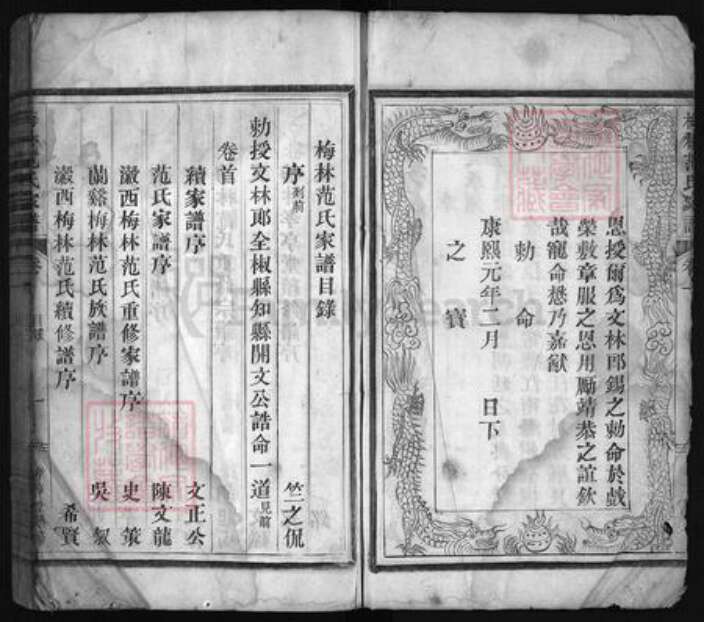 恩授爾爲文林郎錫之勅命於戲
榮敷章服之恩用勵靖恭之誼欽
哉寵命懋乃嘉猷
勅命
康熙元年二月 日下
之寶
梅林范氏家譜目錄
序 刻前 竺之侃
勅授文林郎全椒縣知縣開文公誥命一道 見前
卷首
續家譜序 文正公
范氏家譜序 陳文龍
瀫西梅林范氏重修家譜序 史策
蘭谿梅林范氏族譜序 吳
瀫西梅林范氏續修譜序 希賢